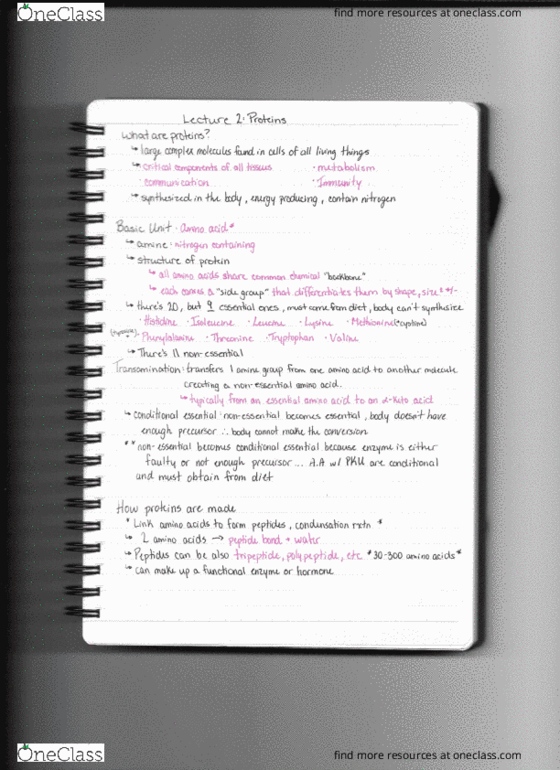 OneClass
find more resources at oneclass.com
Lecture 2: Proteins
What are proteins?
↳ large complex molecules found in cells of all living things
↳ critical components of all tissues · metabolism
· communication · Immunity
↳ synthesized in the body, energy producing, contain nitrogen
Basic Unit · amino acid *
↳ amine · nitrogen containing
↳ structure of protein
↳ all amino acids share common chemical "backbone"
↳ each comes a "side group" that differentiates them by shape, size & +/-
↳ there's 20, but 9 essential ones, must come from diet, body can't synthesize
· Histidine · Isoleucine · Leucine · Lysine · Methionine
· Phenylalanine · Threonine · Tryptophan · Valine
↳ There's 11 non-essential
Transamination: transfers 1 amine group from one amino acid to another molecule
creating a non-essential amino acid.
↳ typically from an essential amino acid to an α-keto acid
↳ conditional essential: non-essential becomes essential, body doesn't have
enough precursor ∴ body cannot make the conversion
** non-essential becomes conditional essential because enzyme is either
faulty or not enough precursor ... A.A w/ PKU are conditional
and must obtain from diet
How proteins are made
* Link amino acids to form peptides, condensation rxtn *
↳ 2 amino acids → peptide bond + water
↳ Peptides can be also tripeptide, polypeptide, etc. * 30-300 amino acids *
↳ can make up a functional enzyme or hormone
OneClass
find more resources at oneclass.com